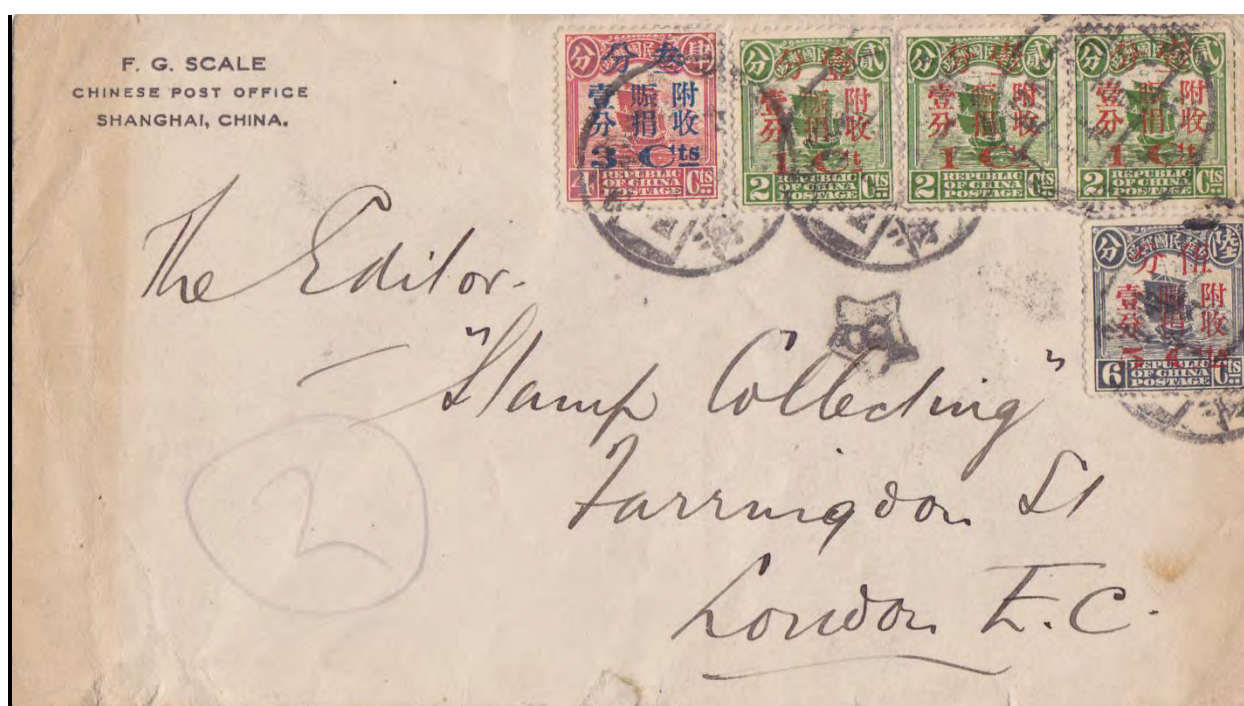 F. G. SCALE
CHINESE POST OFFICE
SHANGHAI, CHINA.
叁分
附收
賑捐
壹分
3 Cts
4 REPUBLIC Cts
OF CHINA
POSTAGE
壹分
附收
賑捐
壹分
1 Ct
2 REPUBLIC Cts
OF CHINA
POSTAGE
壹分
附收
賑捐
壹分
1 Ct
2 REPUBLIC Cts
OF CHINA
POSTAGE
壹分
附收
賑捐
壹分
1 Ct
2 REPUBLIC Cts
OF CHINA
POSTAGE
伍分
附收
賑捐
壹分
5 Cts
6 REPUBLIC Cts
OF CHINA
POSTAGE
The Editor.
"Stamp Collecting"
Farringdon St
London E.C.
2